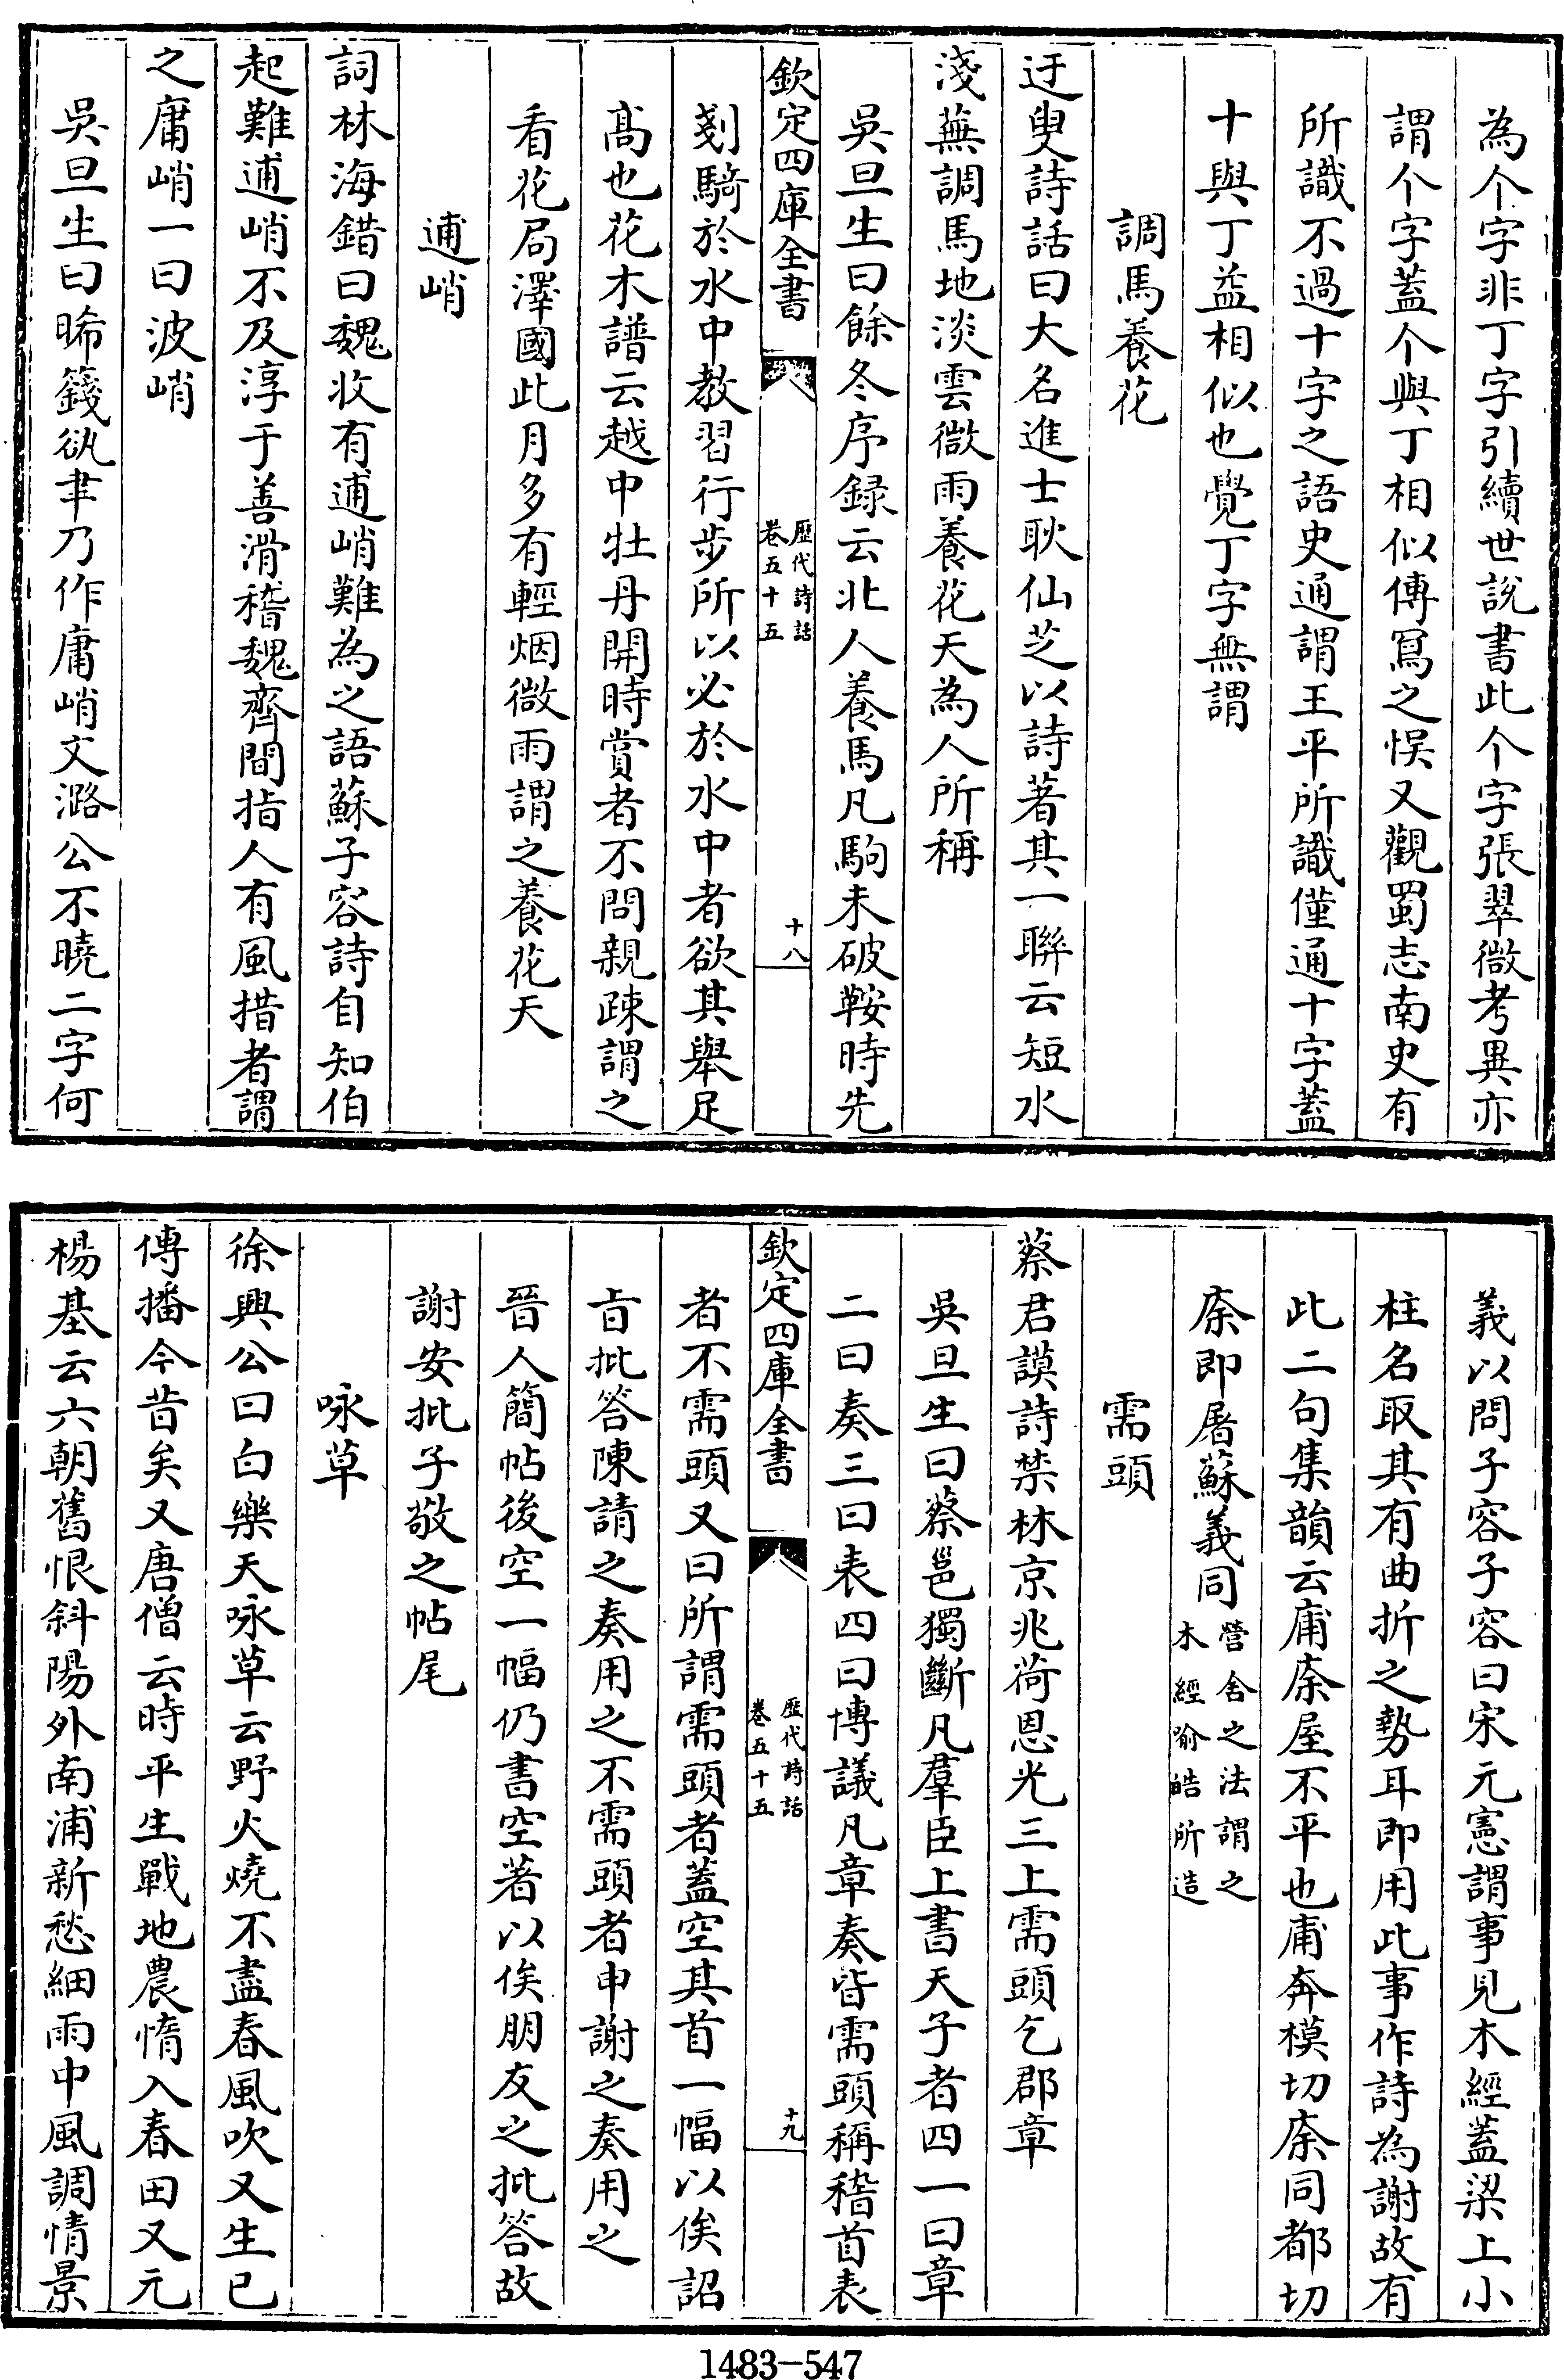 為个字非丁字引續世說書此个字張翠微考異亦
謂个字蓋个與丁相似傳寫之悞又觀蜀志南史有
所識不過十字之語史通謂王平所識僅通十字蓋
十與丁益相似也覺丁字無謂
調馬養花
迂叟詩話曰大名進士耿仙芝以詩著其一聯云短水
淺蕪調馬地淡雲微雨養花天為人所稱
吳旦生曰餘冬序録云北人養馬凡駒未破鞍時先
欽定四庫全書
歴代詩話
卷五十五
十八
剗騎於水中教習行步所以必於水中者欲其舉足
髙也花木譜云越中牡丹開時賞者不問親疎謂之
看花局澤國此月多有輕烟微雨謂之養花天
逋峭
詞林海錯曰魏收有逋峭難為之語蘇子容詩自知伯
起難逋峭不及淳于善滑稽魏齊間指人有風措者謂
之庯峭一曰波峭
吳旦生曰晞籛欱聿乃作庯峭文潞公不曉二字何
義以問子容子容曰宋元憲謂事見木經蓋梁上小
柱名取其有曲折之勢耳即用此事作詩為謝故有
此二句集韻云庯庩屋不平也庯奔模切庩同都切
庩即屠蘇義同
營舍之法謂之
木經喻皓所造
需頭
蔡君謨詩禁林京兆荷恩光三上需頭乞郡章
吳旦生曰蔡邕獨斷凡羣臣上書天子者四一曰章
二曰奏三曰表四曰博議凡章奏皆需頭稱稽首表
欽定四庫全書
歴代詩話
卷五十五
十九
者不需頭又曰所謂需頭者蓋空其首一幅以俟詔
㫖批答陳請之奏用之不需頭者申謝之奏用之
晉人簡帖後空一幅仍書空著以俟朋友之批答故
謝安批子敬之帖尾
咏草
徐興公曰白樂天咏草云野火燒不盡春風吹又生已
傳播今昔矣又唐僧云時平生戰地農惰入春田又元
楊基云六朝舊恨斜陽外南浦新愁細雨中風調情景
1483-547